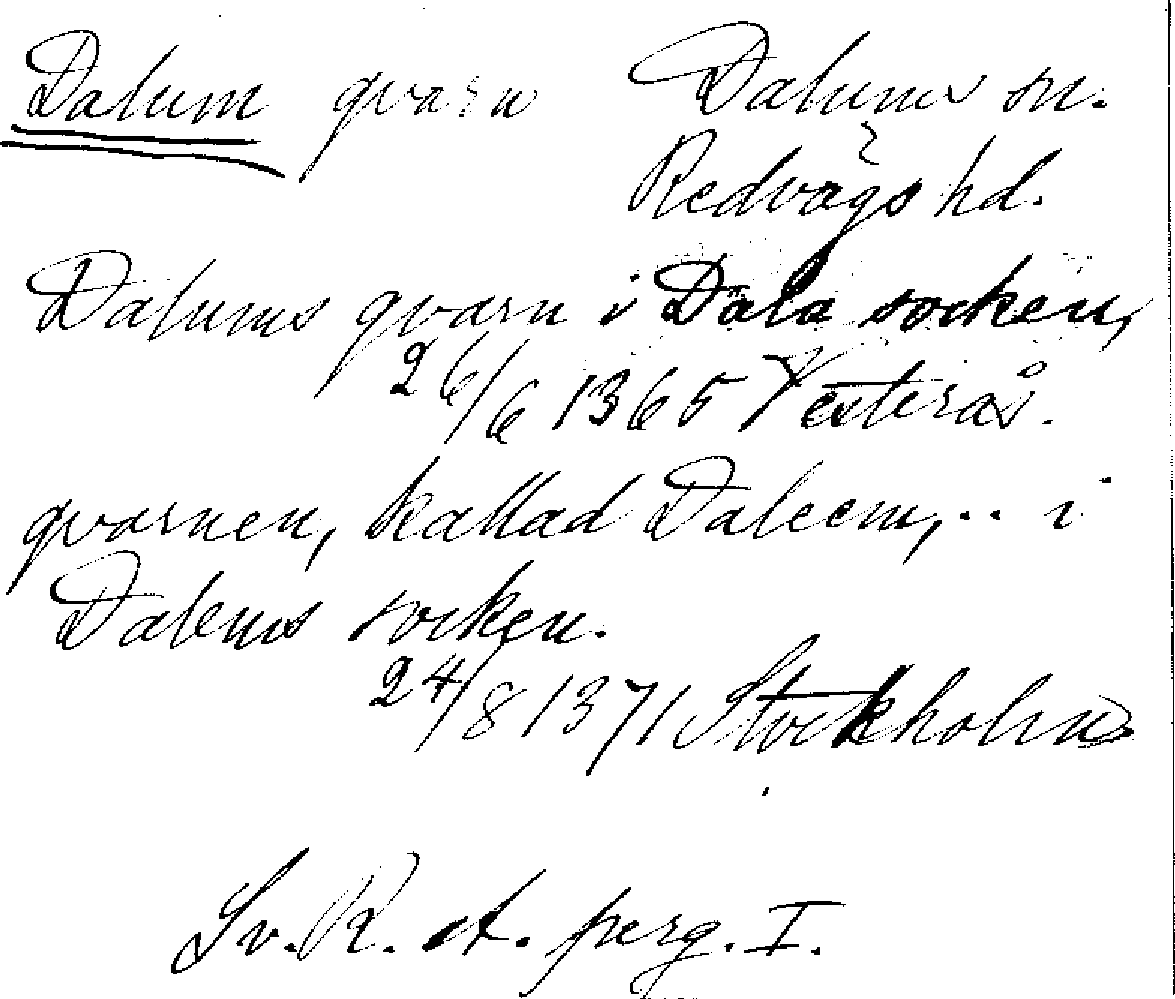 Dalum qvarn Dalums sn.
Redvägs hd.
Dalums qvarn i Dala socken,
26/6 1365 Vesterås.
qvarnen, kallad Daleem, .. i
Dalems socken.
24/8 1371 Stockholm
Sv. R. A. perg. I.